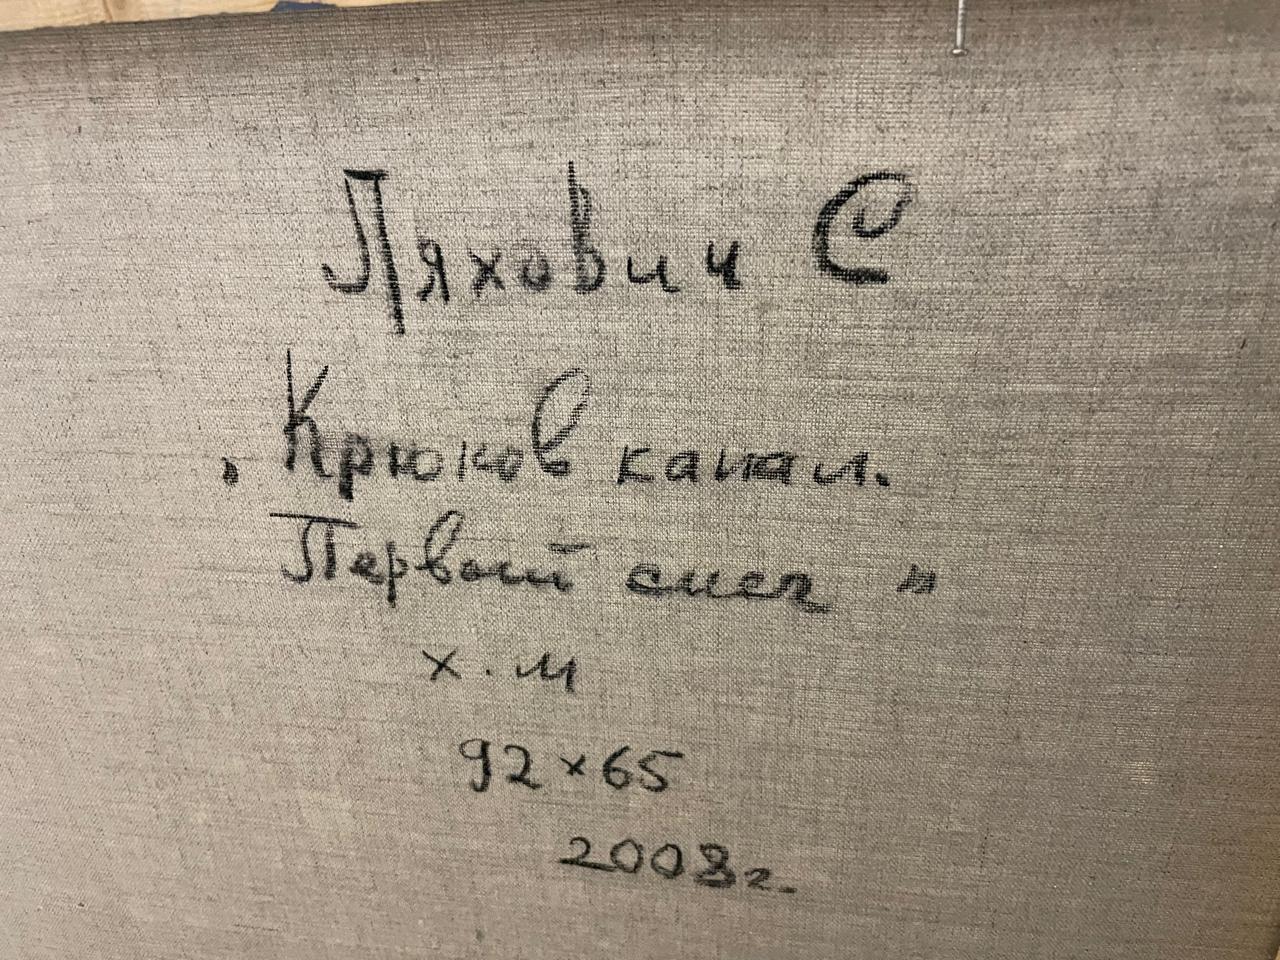 Ляхович С
„Крюков канал.
Первый снег"
х.м
92×65
2008г.